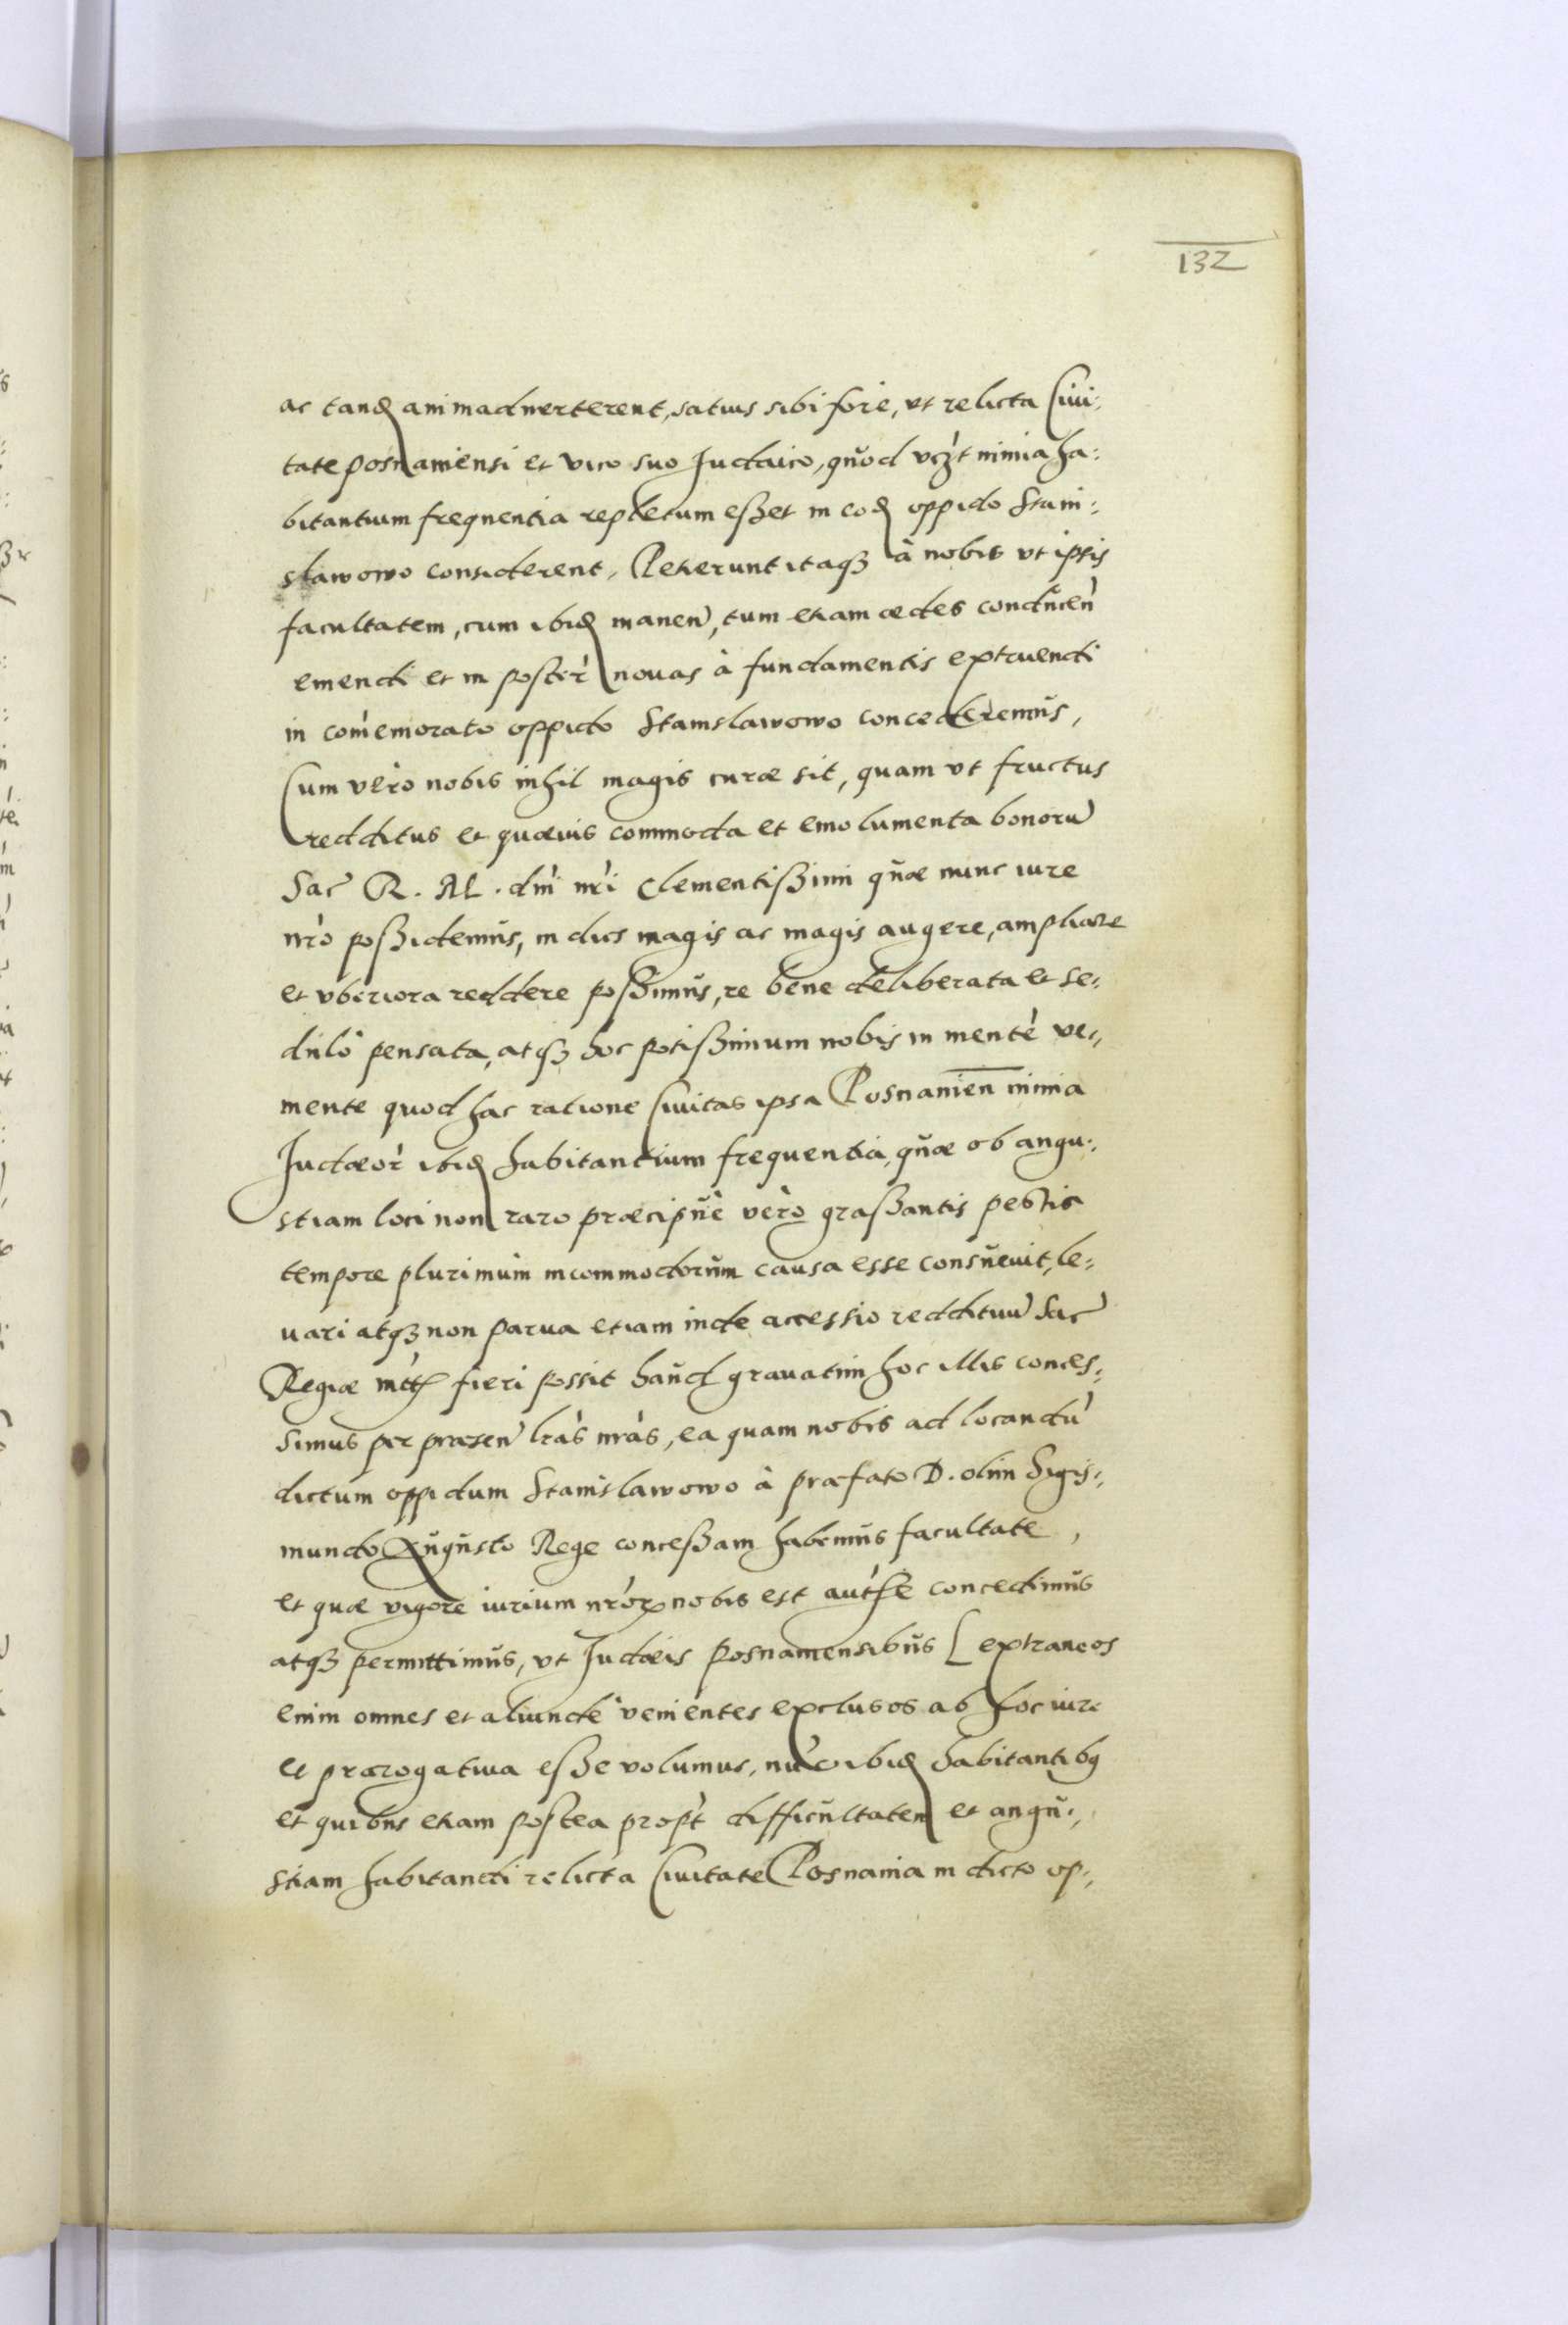 132
ac tandẽ animaduerterent, satius sibi fore, vt relicta Ciui:
tate posnaniensi et vico suo Judaico, quod vꝫt nimia ha:
bitantium frequentia repletum eßet in eodẽ oppido Stani:
slawowo considerent, Petierunt itaqꝫ à nobis vt ipsis
facultatem, cum ibidẽ manen̄, tum etiam ædes conducen̄
emendi et in poster̃ nouas à fundamentis extruendi
in com̃emorato oppido Stanislawowo concederemus,
Cum vero nobis nihil magis curæ sit, quam vt fructus
redditus et quæuis commoda et emolumenta bonorũ
Sac̃ R. M. dñi nr̃i Clementißimi quæ nunc iure
nr̃o poßidemus, in dies magis ac magis augere, ampliare
et vberiora reddere poßimus, re bene deliberata et se:
dulo pensata, atqꝫ hoc potißimum nobis in mentẽ ve:
niente quod hac ratione Ciuitas ipsa Posnanien̄ nimia
Judæor̃ ibidẽ habitantium frequentia, quæ ob angu:
stiam loci non raro præcipuè verò graßantis pestis
tempore plurimùm incommodorum causa esse consueuit, le:
uari atqꝫ non parua etiam inde accessio reddituũ Sac̃
Regiæ mttis fieri possit haud grauatim hoc illis conces:
simus per præsen̄ lr̃as nr̃as, ea quam nobis ad locandũ
dictum oppidum Stanislawowo à præfato D. olim Sigis:
mundo Augusto Rege conceßam habemus facultate,
et quæ vigore iurium nr̃oꝝ nobis est aut̃te concedimus
atqꝫ permittimus, vt Judæis posnaniensibus [extraneos
enim omnes et aliunde venientes exclusos ab hoc iure
et prærogatiua eße volumus, nũc ibidẽ habitantibꝰ
et quibus etiam postea propt̃ difficultatem et angu:
stiam habitandi relicta Ciuitate Posnania in dicto op: